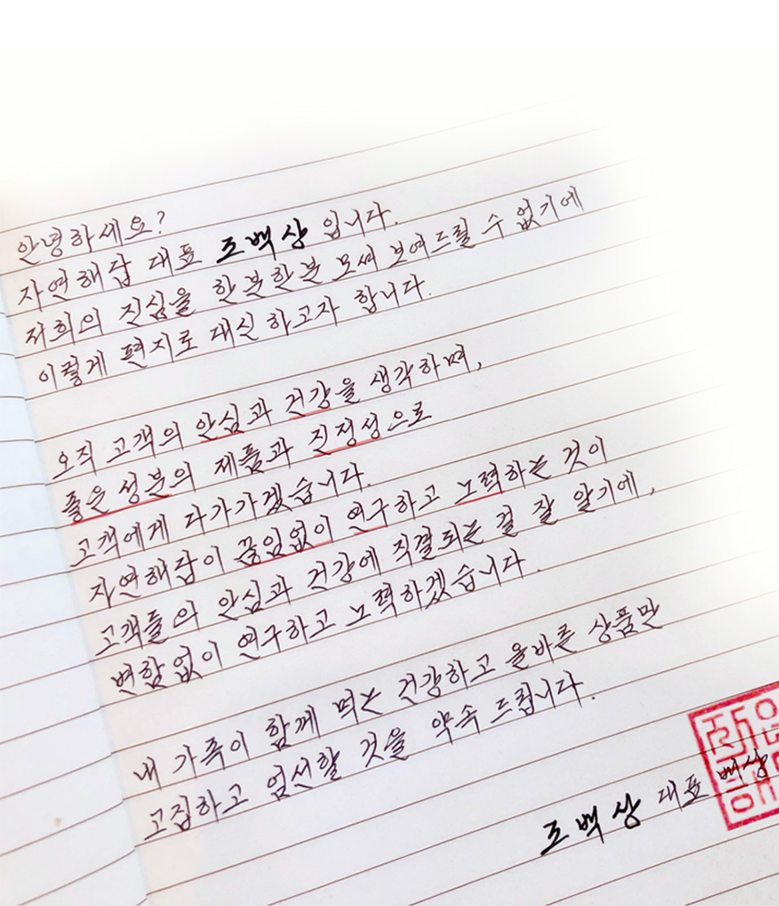 안녕하세요?
자연해답 대표 조백상 입니다.
저희의 진심을 한분한분 모써 보여드릴 수 없기에
이렇게 편지로 대신 하고자 합니다.
오직 고객의 안심과 건강을 생각하며,
좋은 성분의 제품과 진정성으로
고객에게 다가가겠습니다.
자연해답이 끊임없이 연구하고 노력하는 것이
고객들의 안심과 건강에 직결되는 걸 잘 알기에,
변함없이 연구하고 노력하겠습니다.
내 가족이 함께 먹는 건강하고 올바른 상품만
고집하고 엄선할 것을 약속 드립니다.
조백상 대표